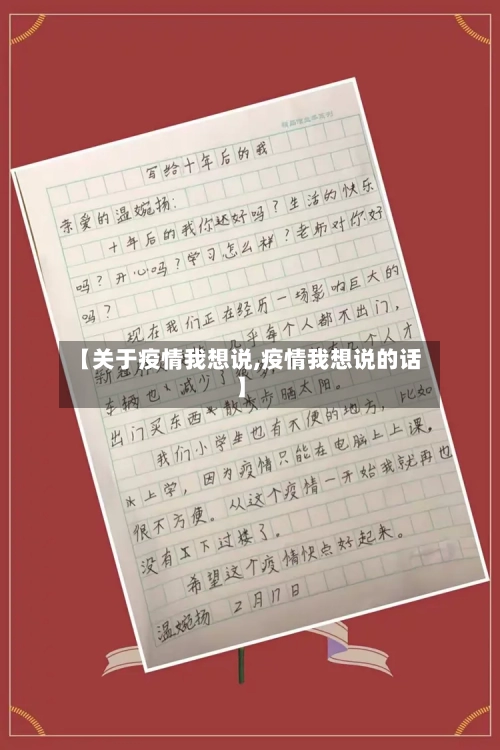 写给十年后的我
亲爱的温婉扬：
十年后的我你还好吗？生活的快乐
吗？开心吗？学习怎么样？老师对你好
吗？
现在我们正在经历一场影响巨大的
新冠 几乎每个人都不出门，
【关于疫情我想说,疫情我想说的话
】
车辆也 减少了 几个人才
出门买东西 散散步晒太阳。
我们小学生也有不便的地方，比如
上学，因为疫情只能在电脑上上课。
很不方便。从这个疫情一开始我就再也
没有 下过楼了。
希望这个疫情快点好起来。
温婉扬 2月17日